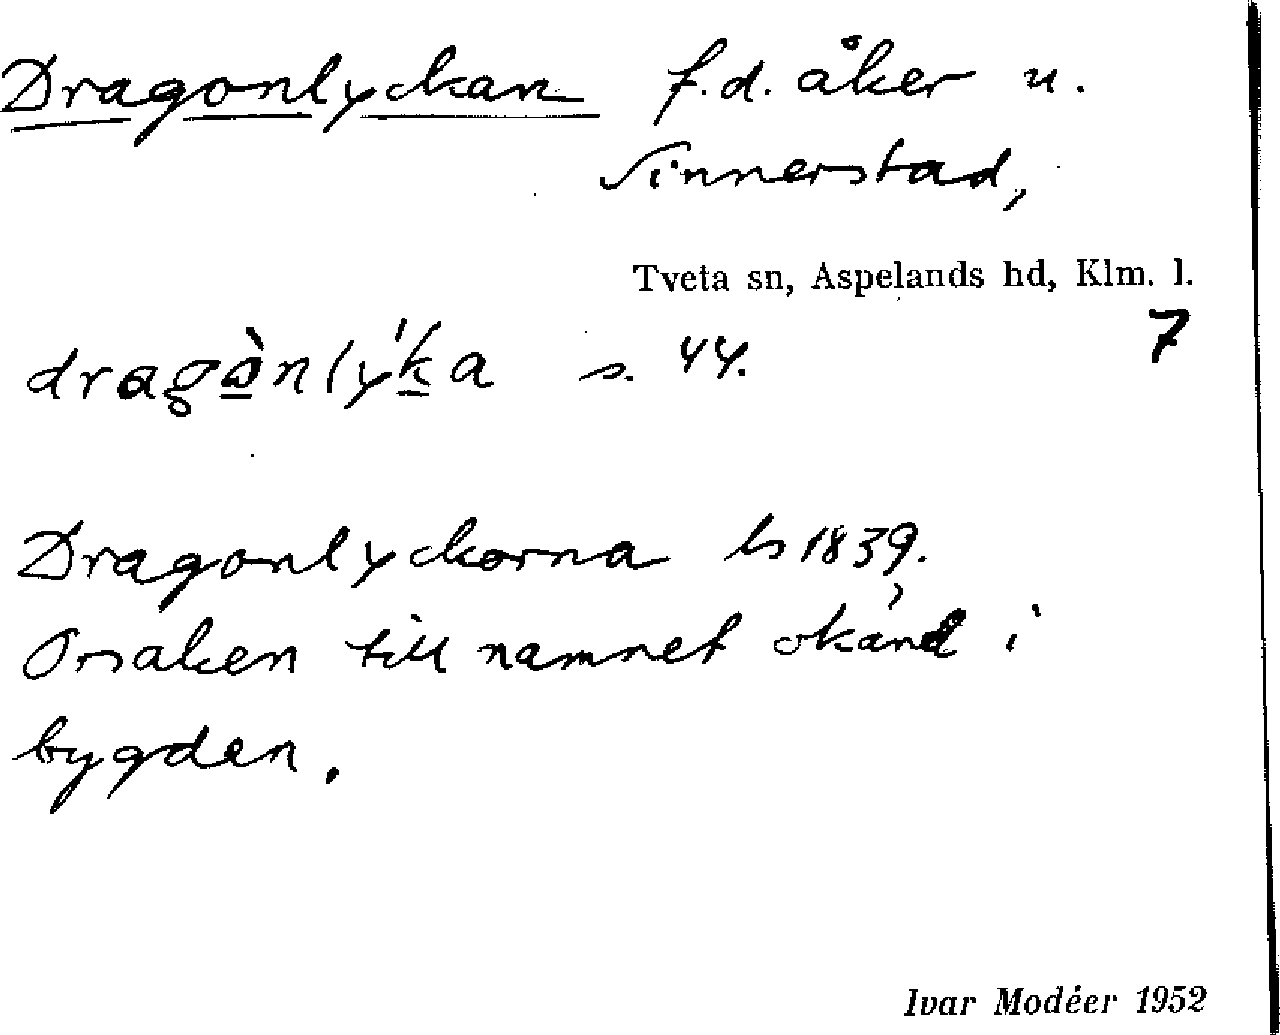 Dragonlyckan f.d. åker u.
Sinnerstad,
Tveta sn, Aspelands hd, Klm. l.
7
dragònlýka s. 44.
Dragonlyckorna ls 1839.
Orsaken till namnet okänd i
bygden.
Ivar Modéer 1952